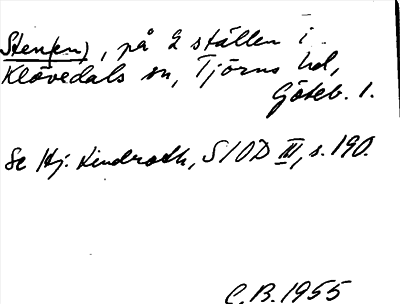 Sten(en), på 2 ställen i
Klövedals sn, Tjörns hd,
Göteb. l.
Se Hj. Lindroth, SIOD III, s. 190.
C.B. 1955